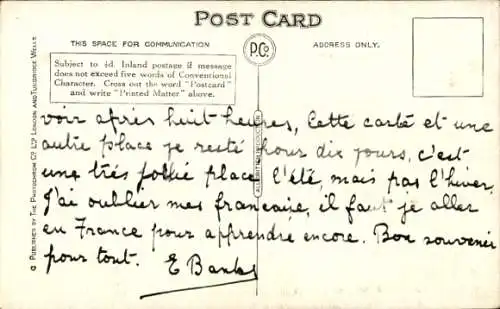 POST CARD
THIS SPACE FOR COMMUNICATION
P.Co.
ADDRESS ONLY.
Subject to ½d. Inland postage if message
does not exceed five words of Conventional
Character. Cross out the word "Postcard"
and write "Printed Matter" above.
voir après huit heures, Cette carte et une
autre place je resté pour dix jours, c'est
une très jollie place l'été, mais pas l'hiver,
J'ai oublier mes francaise, il faut je aller
en France pour apprendre encore. Bon souvenir
pour tout. E Banks
© PUBLISHED BY THE PHOTOCHROM CO. LTD. LONDON AND TUNBRIDGE WELLS